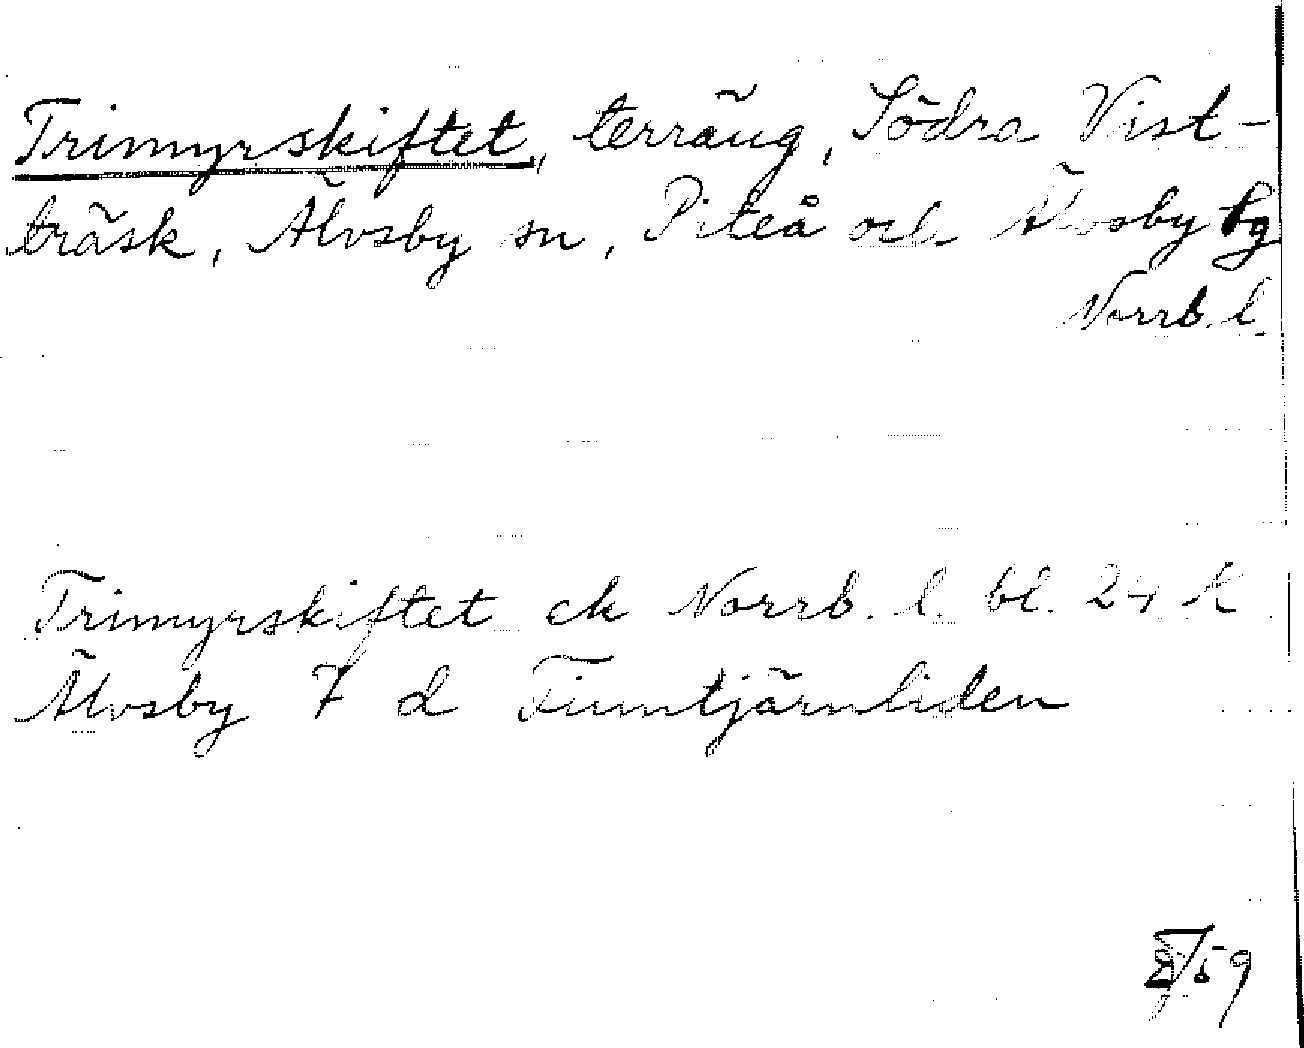 Trimyrskiftet, terräng, Södra Vist-
träsk, Älvsby sn, Piteå och Älvsby tg
Norrb. l.
Trimyrskiftet ek Norrb. l. bl. 24 k
Älvsby 7 d Timtjärnliden
/59